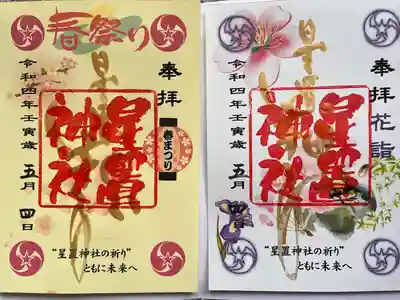 春祭り
奉拝
春まつり
星置神社
令和四年壬寅歳 五月 四日
“星置神社の祈り”
ともに未来へ
奉拝 花詣
星置神社
令和四年壬寅歳 五月
“星置神社の祈り”
ともに未来へ